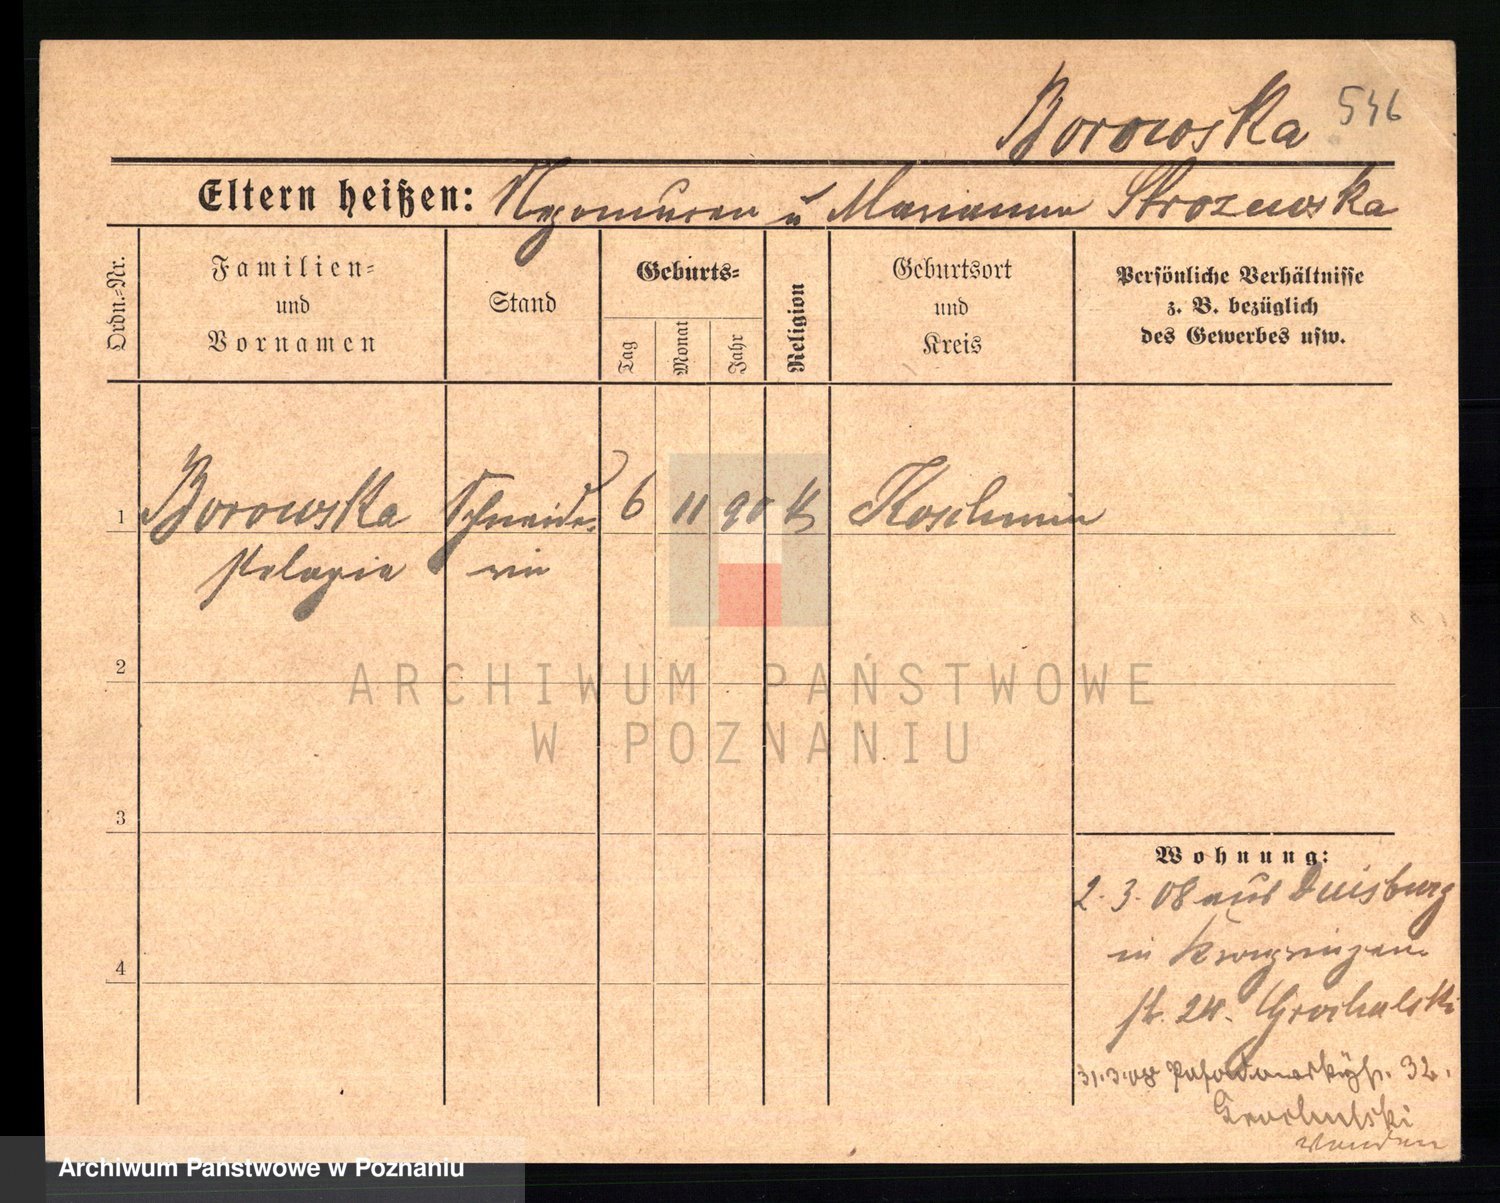 Borowska 546
Eltern heißen: Nepomucen u Marianna Strozewska
Ordn.-Nr.
Familien-
und
Vornamen
Stand
Geburts-
Tag
Monat
Jahr
Religion
Geburtsort
und
Kreis
Persönliche Verhältnisse
z. B. bezüglich
des Gewerbes usw.
1 Borowska Schneide- 6 11 90 K Koschmin
Pelagia rin
2
ARCHIWUM PAŃSTWOWE
W POZNANIU
3
Wohnung:
2.3.08 aus Duisburg
in
4
str. 24. Grochalski
31.3.08 32.
Grochalski
wenden
Archiwum Państwowe w Poznaniu